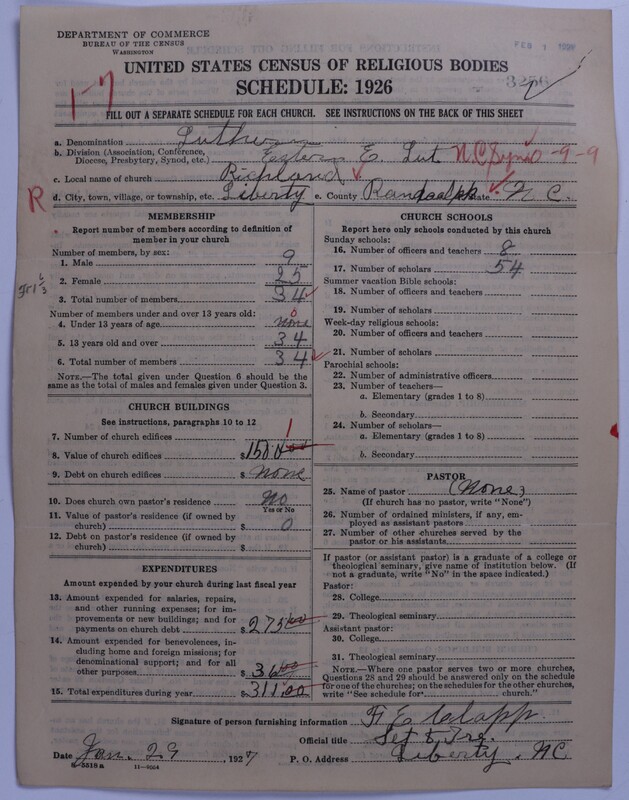 DEPARTMENT OF COMMERCE
BUREAU OF THE CENSUS
WASHINGTON
FEB 1
3256
UNITED STATES CENSUS OF RELIGIOUS BODIES
SCHEDULE: 1926
1-7
FILL OUT A SEPARATE SCHEDULE FOR EACH CHURCH. SEE INSTRUCTIONS ON THE BACK OF THIS SHEET
a. Denomination Lutheran
b. Division (Association, Conference, Diocese, Presbytery, Synod, etc.) Eastern E. Lut N.C. Synod -9-9
c. Local name of church Richland
R
d. City, town, village, or township, etc. Liberty e. County Randolph State N C.
MEMBERSHIP
Report number of members according to definition of
member in your church
Number of members, by sex:
1. Male 9
2. Female 25
3. Total number of members 34
Number of members under and over 13 years old:
4. Under 13 years of age none 0
5. 13 years old and over 34
6. Total number of members 34
NOTE.—The total given under Question 6 should be the
same as the total of males and females given under Question 3.
CHURCH BUILDINGS
See instructions, paragraphs 10 to 12
7. Number of church edifices 1
8. Value of church edifices $
9. Debt on church edifices $ None
10. Does church own pastor's residence No
Yes or No
11. Value of pastor's residence (if owned by
church) $ 0
12. Debt on pastor's residence (if owned by
church) $
EXPENDITURES
Amount expended by your church during last fiscal year
13. Amount expended for salaries, repairs,
and other running expenses; for im-
provements or new buildings; and for
payments on church debt $ 275.00
14. Amount expended for benevolences, in-
cluding home and foreign missions; for
denominational support; and for all
other purposes $ 36.00
15. Total expenditures during year $ 311.00
CHURCH SCHOOLS
Report here only schools conducted by this church
Sunday schools:
16. Number of officers and teachers 8
17. Number of scholars 54
Summer vacation Bible schools:
18. Number of officers and teachers
19. Number of scholars
Week-day religious schools:
20. Number of officers and teachers
21. Number of scholars
Parochial schools:
22. Number of administrative officers
23. Number of teachers—
a. Elementary (grades 1 to 8)
b. Secondary
24. Number of scholars—
a. Elementary (grades 1 to 8)
b. Secondary
PASTOR
25. Name of pastor (None)
(If church has no pastor, write "None")
26. Number of ordained ministers, if any, em-
ployed as assistant pastors
27. Number of other churches served by the
pastor or his assistants
If pastor (or assistant pastor) is a graduate of a college or
theological seminary, give name of institution below. (If
not a graduate, write "No" in the space indicated.)
Pastor:
28. College
29. Theological seminary
Assistant pastor:
30. College
31. Theological seminary
NOTE.—Where one pastor serves two or more churches,
Questions 28 and 29 should be answered only on the schedule
for one of the churches; on the schedules for the other churches,
write "See schedule for church."
Signature of person furnishing information F. E. Clapp
Official title
Date Jan. 29, 1927 P. O. Address Liberty, NC
8-5518a 11-9024